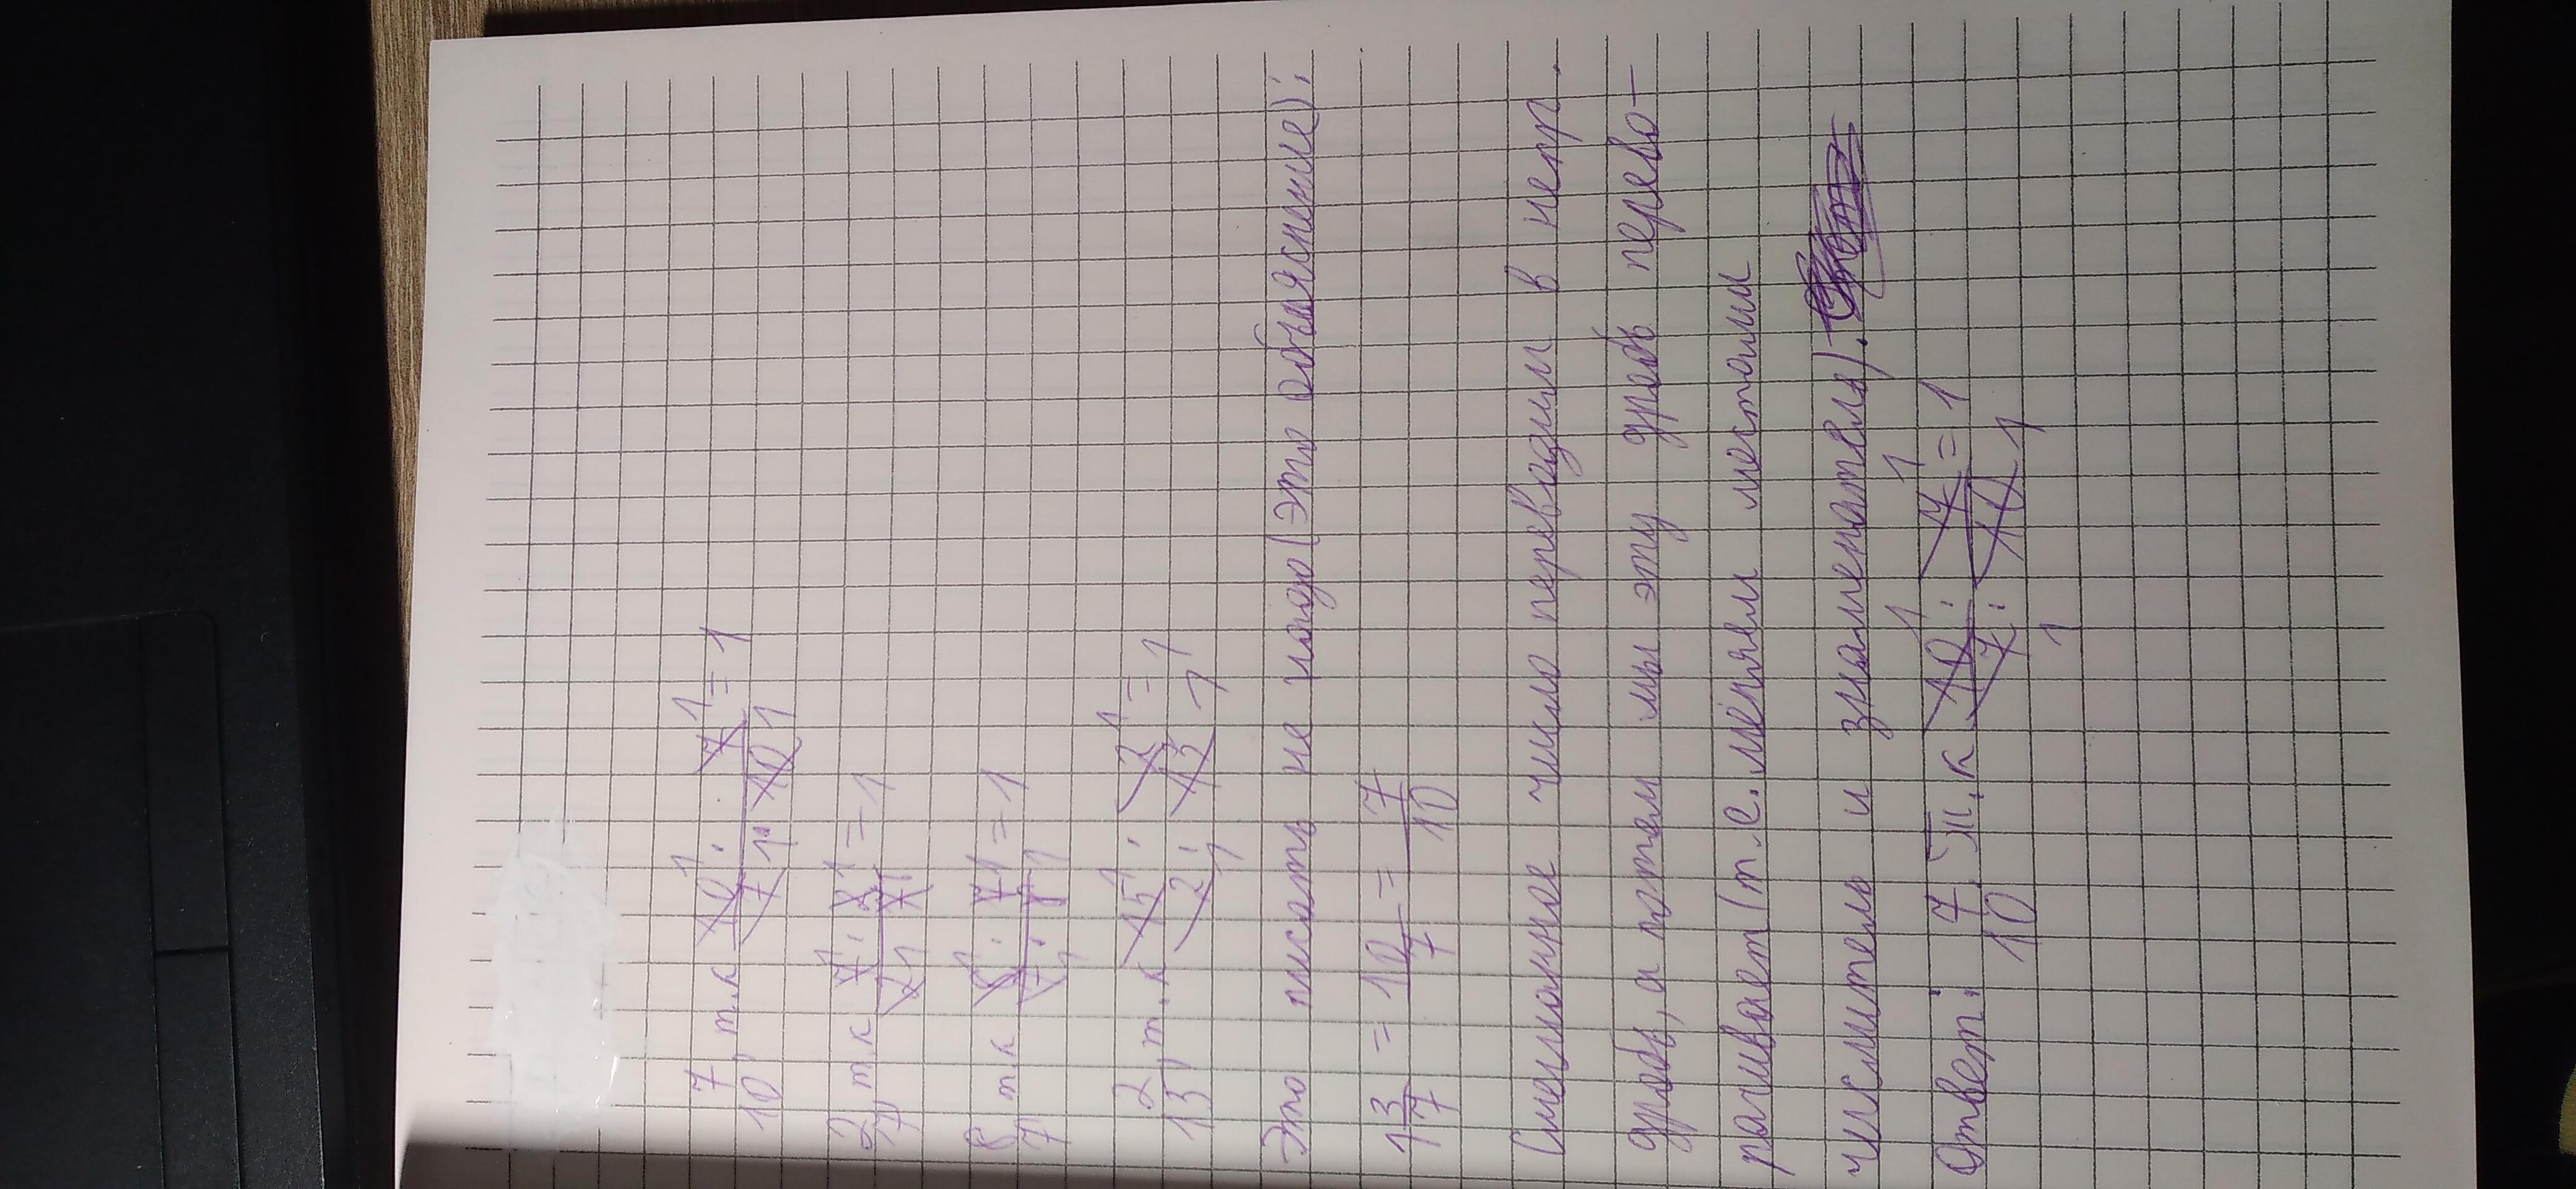 7/10, т.к 10/7 · 7/10 = 1
2/7, т.к 7 · 2 / 2 · 7 = 1
8/7 т.к 8 · 7 / 7 · 8 = 1
2/15, т.к 15 · 2 / 2 · 15 = 1
Это писать не надо (это объяснение):
1 3/7 = 10/7 = 7/10
Смешанное число переводим в непр.
дробь, а потом мы эту дробь перево-
рачивает (т.е. меняем местами
числитель и знаменатель).
Ответ: 7/10. Т.к 10 · 7 / 7 · 10 = 1